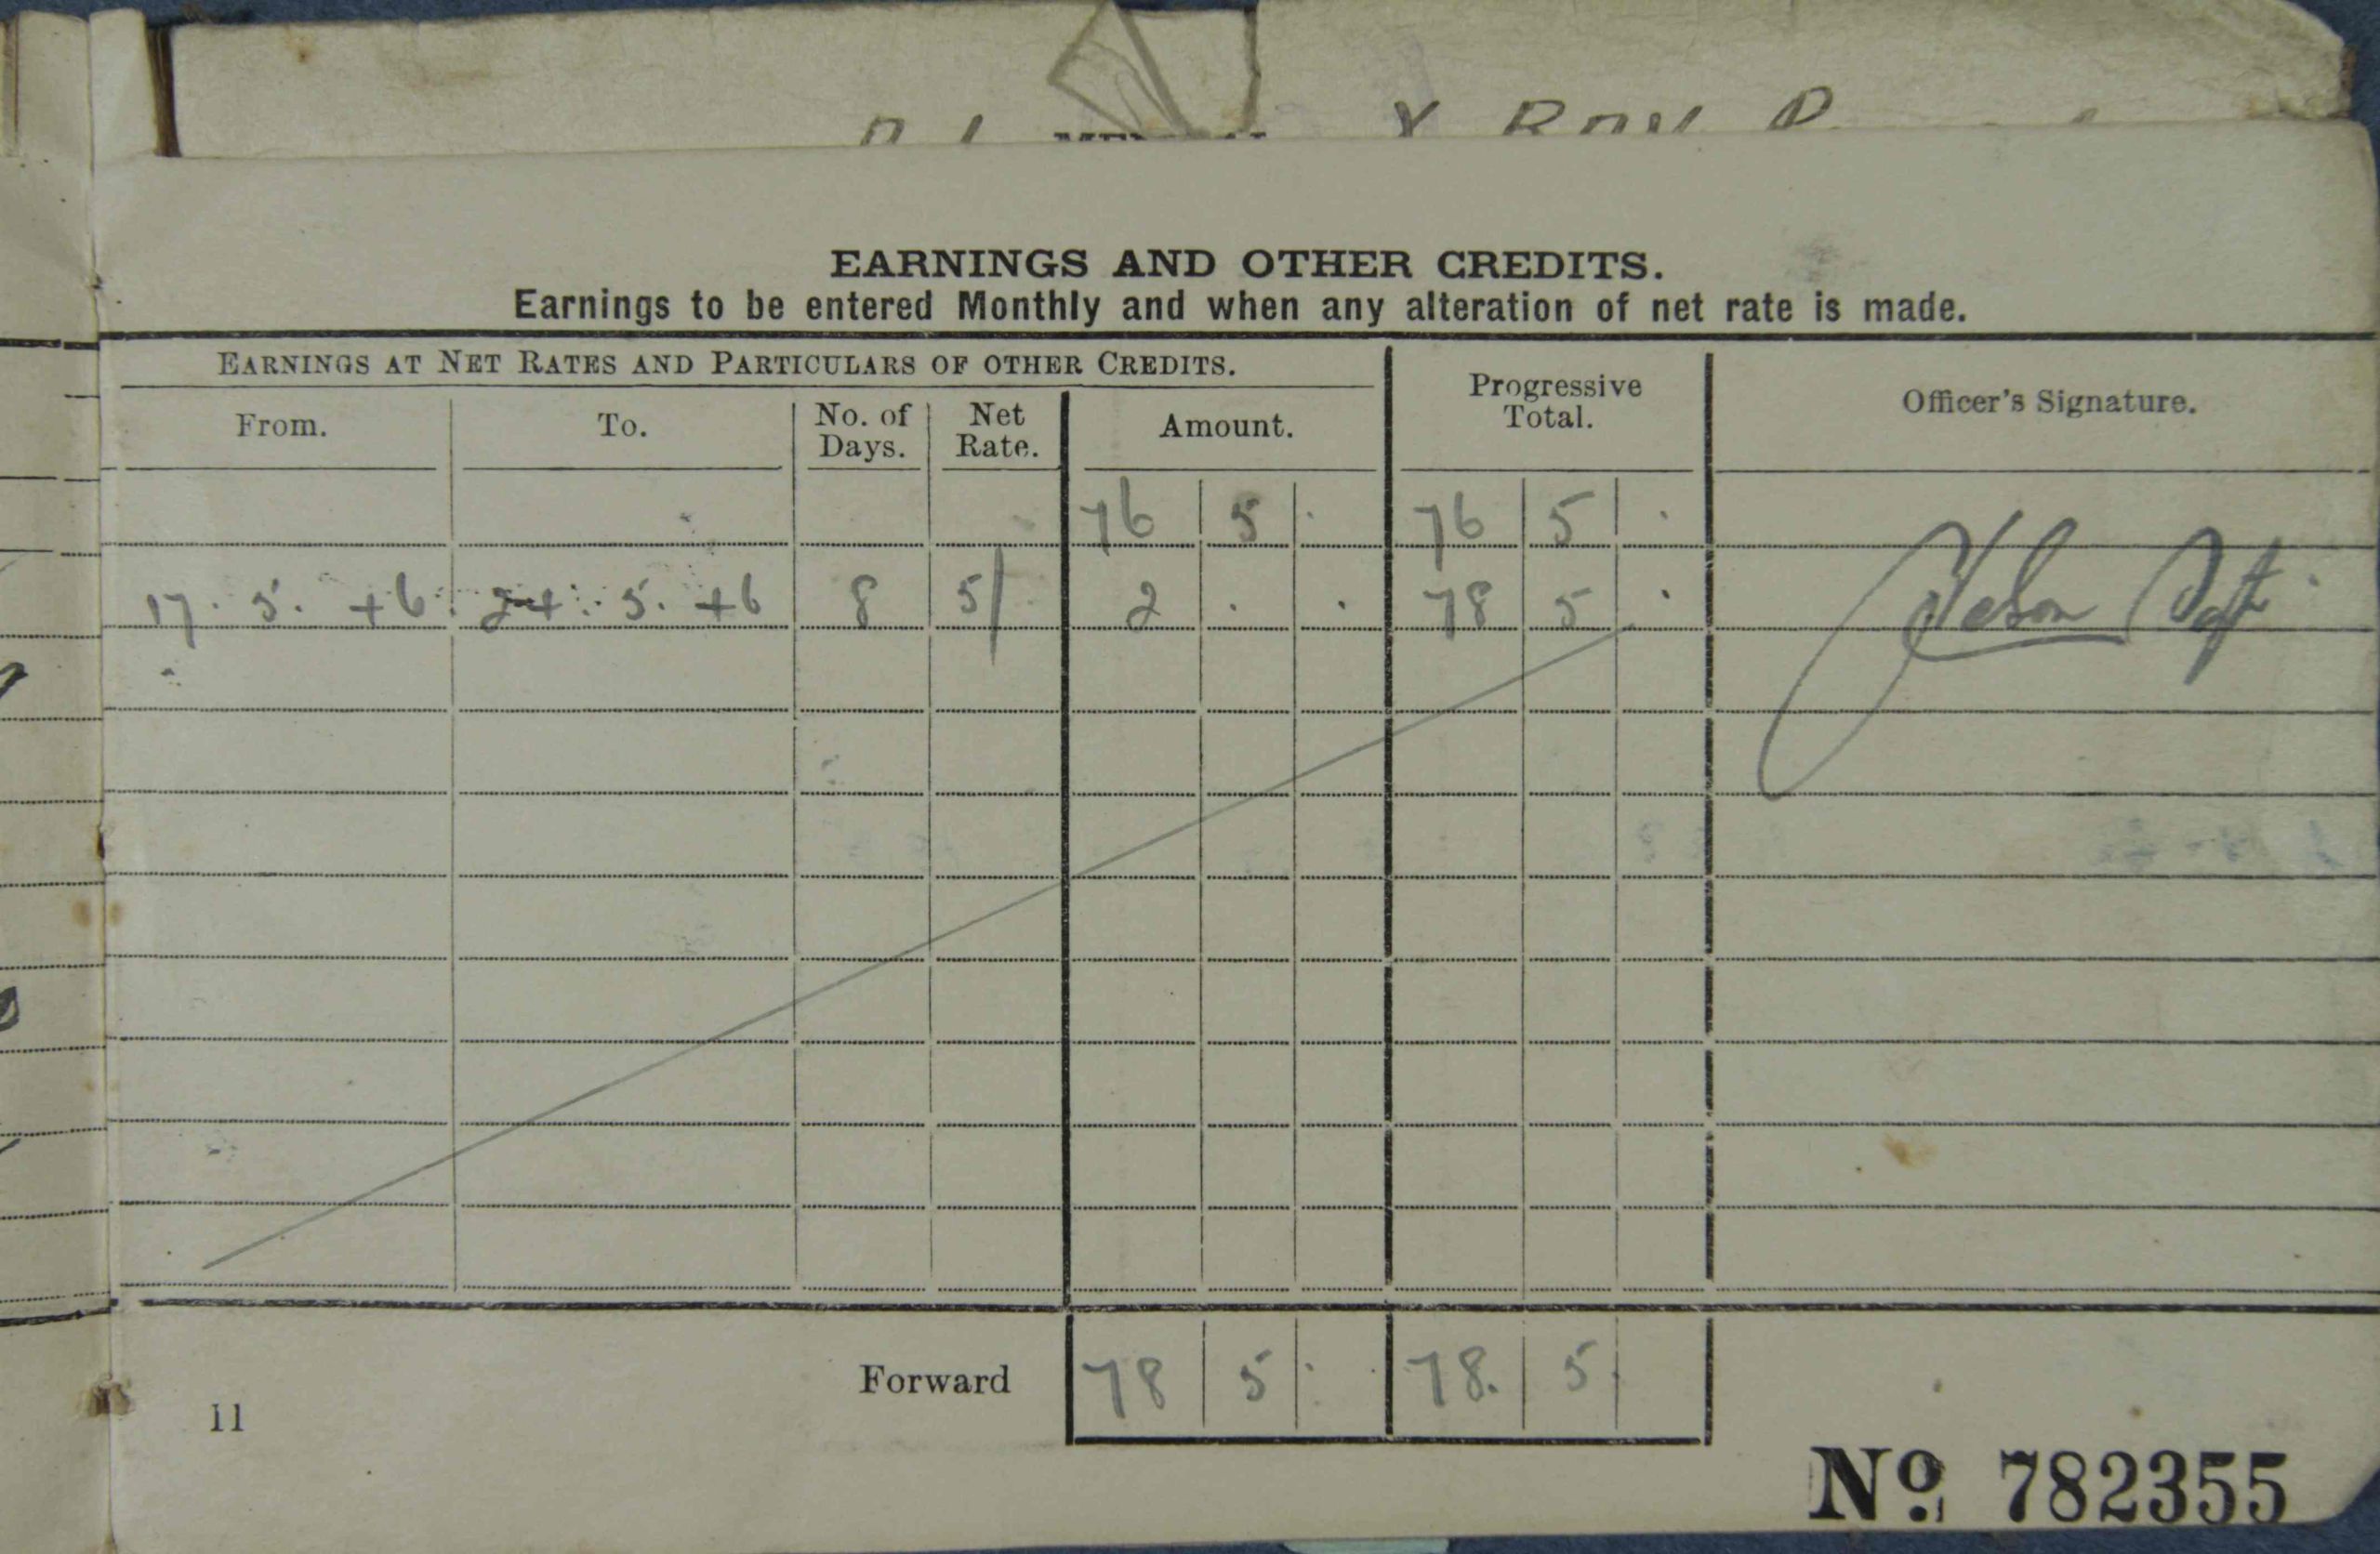 EARNINGS AND OTHER CREDITS.
Earnings to be entered Monthly and when any alteration of net rate is made.
EARNINGS AT NET RATES AND PARTICULARS OF OTHER CREDITS.
Progressive Total.
Officer's Signature.
From. To. No. of Days. Net Rate. Amount.
76 5 . 76 5 .
17. 5. 46. 24. 5. 46 8 5/ 2 . . 78 5 .
Forward 78 5 . 78. 5.
11
No. 782355